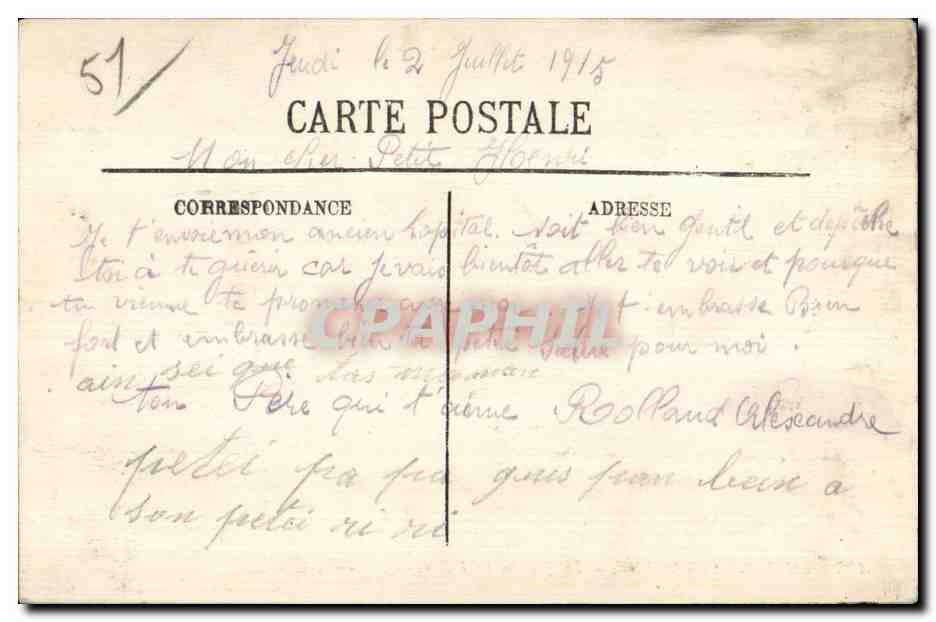 51/
Jeudi le 2 Juillet 1915
CARTE POSTALE
Mon cher Petit Henri
CORRESPONDANCE
ADRESSE
Je t'envoie mon ancien hopital. soit bien gentil et depêche
toi à te guérir car je vais bientôt aller te voir et pourque
tu vienne te promené t'embrasse Bien
fort et embrasse bien ta petite Sœur pour moi.
ain sei que tas maman
ton Père qui t'aieme Rolland Alexandre
petei pa pa
son petei ri ri
CPAPHIL